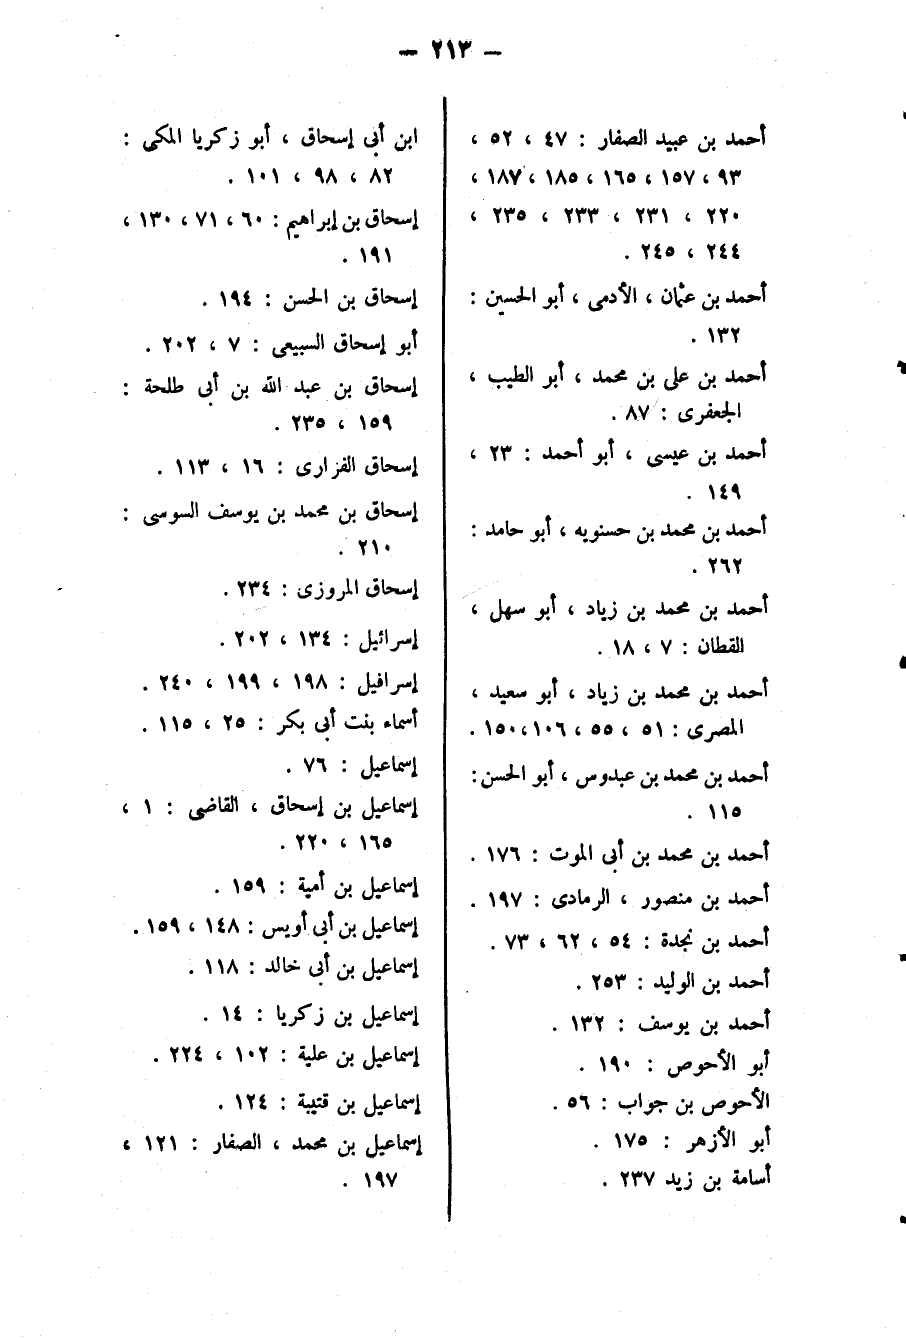 — ٢١٣ —
أحمد بن عبيد الصفار : ٤٧ ، ٥٢ ،
٩٣ ، ١٥٧ ، ١٦٥ ، ١٨٥ ، ١٨٧ ،
٢٢٠ ، ٢٣١ ، ٢٣٣ ، ٢٣٥ ،
٢٤٤ ، ٢٤٥ .
أحمد بن عثمان ، الأدمى ، أبو الحسين :
١٣٢ .
أحمد بن على بن محمد ، أبو الطيب ،
الجعفرى : ٨٧ .
أحمد بن عيسى ، أبو أحمد : ٢٣ ،
١٤٩ .
أحمد بن محمد بن حسنويه ، أبو حامد :
٢٦٢ .
أحمد بن محمد بن زياد ، أبو سهل ،
القطان : ٧ ، ١٨ .
أحمد بن محمد بن زياد ، أبو سعيد ،
المصرى : ٥١ ، ٥٥ ، ١٠٦ ، ١٥٠ .
أحمد بن محمد بن عبدوس ، أبو الحسن :
١١٥ .
أحمد بن محمد بن أبى الموت : ١٧٦ .
أحمد بن منصور ، الرمادى : ١٩٧ .
أحمد بن نجدة : ٥٤ ، ٦٢ ، ٧٣ .
أحمد بن الوليد : ٢٥٣ .
أحمد بن يوسف : ١٣٢ .
أبو الأحوص : ١٩٠ .
الأحوص بن جواب : ٥٦ .
أبو الأزهر : ١٧٥ .
أسامة بن زيد ٢٣٧ .
ابن أبى إسحاق ، أبو زكريا المكى :
٨٢ ، ٩٨ ، ١٠١ .
إسحاق بن إبراهيم : ٦٠ ، ٧١ ، ١٣٠ ،
١٩١ .
إسحاق بن الحسن : ١٩٤ .
أبو إسحاق السبيعى : ٧ ، ٢٠٢ .
إسحاق بن عبد الله بن أبى طلحة :
١٥٩ ، ٢٣٥ .
إسحاق الفزارى : ١٦ ، ١١٣ .
إسحاق بن محمد بن يوسف السوسى :
٢١٠ .
إسحاق المروزى : ٢٣٤ .
إسرائيل : ١٣٤ ، ٢٠٢ .
إسرافيل : ١٩٨ ، ١٩٩ ، ٢٤٠ .
أسماء بنت أبى بكر : ٢٥ ، ١١٥ .
إسماعيل : ٧٦ .
إسماعيل بن إسحاق ، القاضى : ١ ،
١٦٥ ، ٢٢٠ .
إسماعيل بن أمية : ١٥٩ .
إسماعيل بن أبى أويس : ١٤٨ ، ١٥٩ .
إسماعيل بن أبى خالد : ١١٨ .
إسماعيل بن زكريا : ١٤ .
إسماعيل بن علية : ١٠٢ ، ٢٢٤ .
إسماعيل بن قتيبة : ١٢٤ .
إسماعيل بن محمد ، الصفار : ١٢١ ،
١٩٧ .